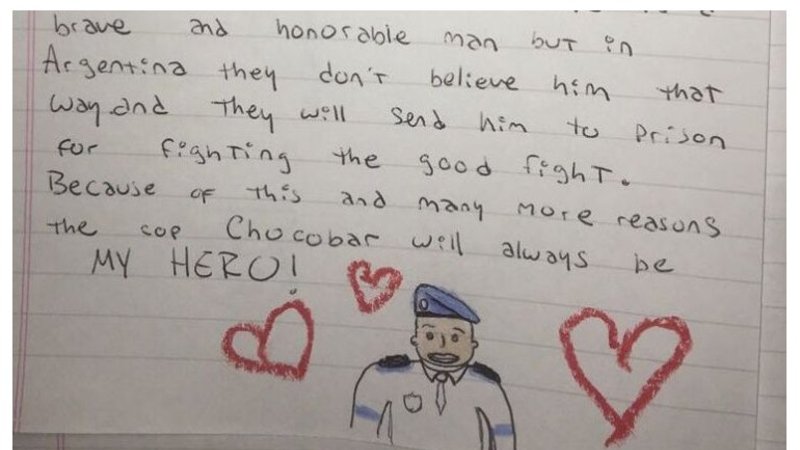 brave and honorable man but in
Argentina they don't believe him that
way and they will send him to prison
for fighting the good fight.
Because of this and many more reasons
the cop Chocobar will always be
MY HERO!